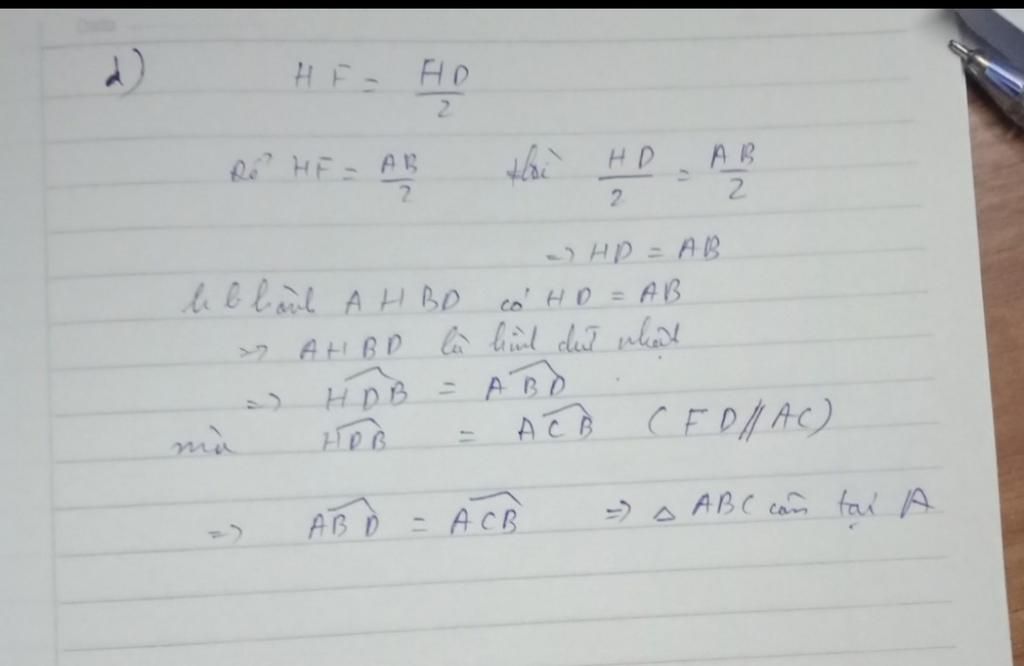 d) HF = HD/2
Để HF = AB/2 thì HD/2 = AB/2
=> HD = AB
h b hành AHBD có HD = AB
=> AHBD là hình chữ nhật
=> \widehat{HDB} = \widehat{ABD}
mà \widehat{HDB} = \widehat{ACB} (FD // AC)
=> \widehat{ABD} = \widehat{ACB} => △ ABC cân tại A